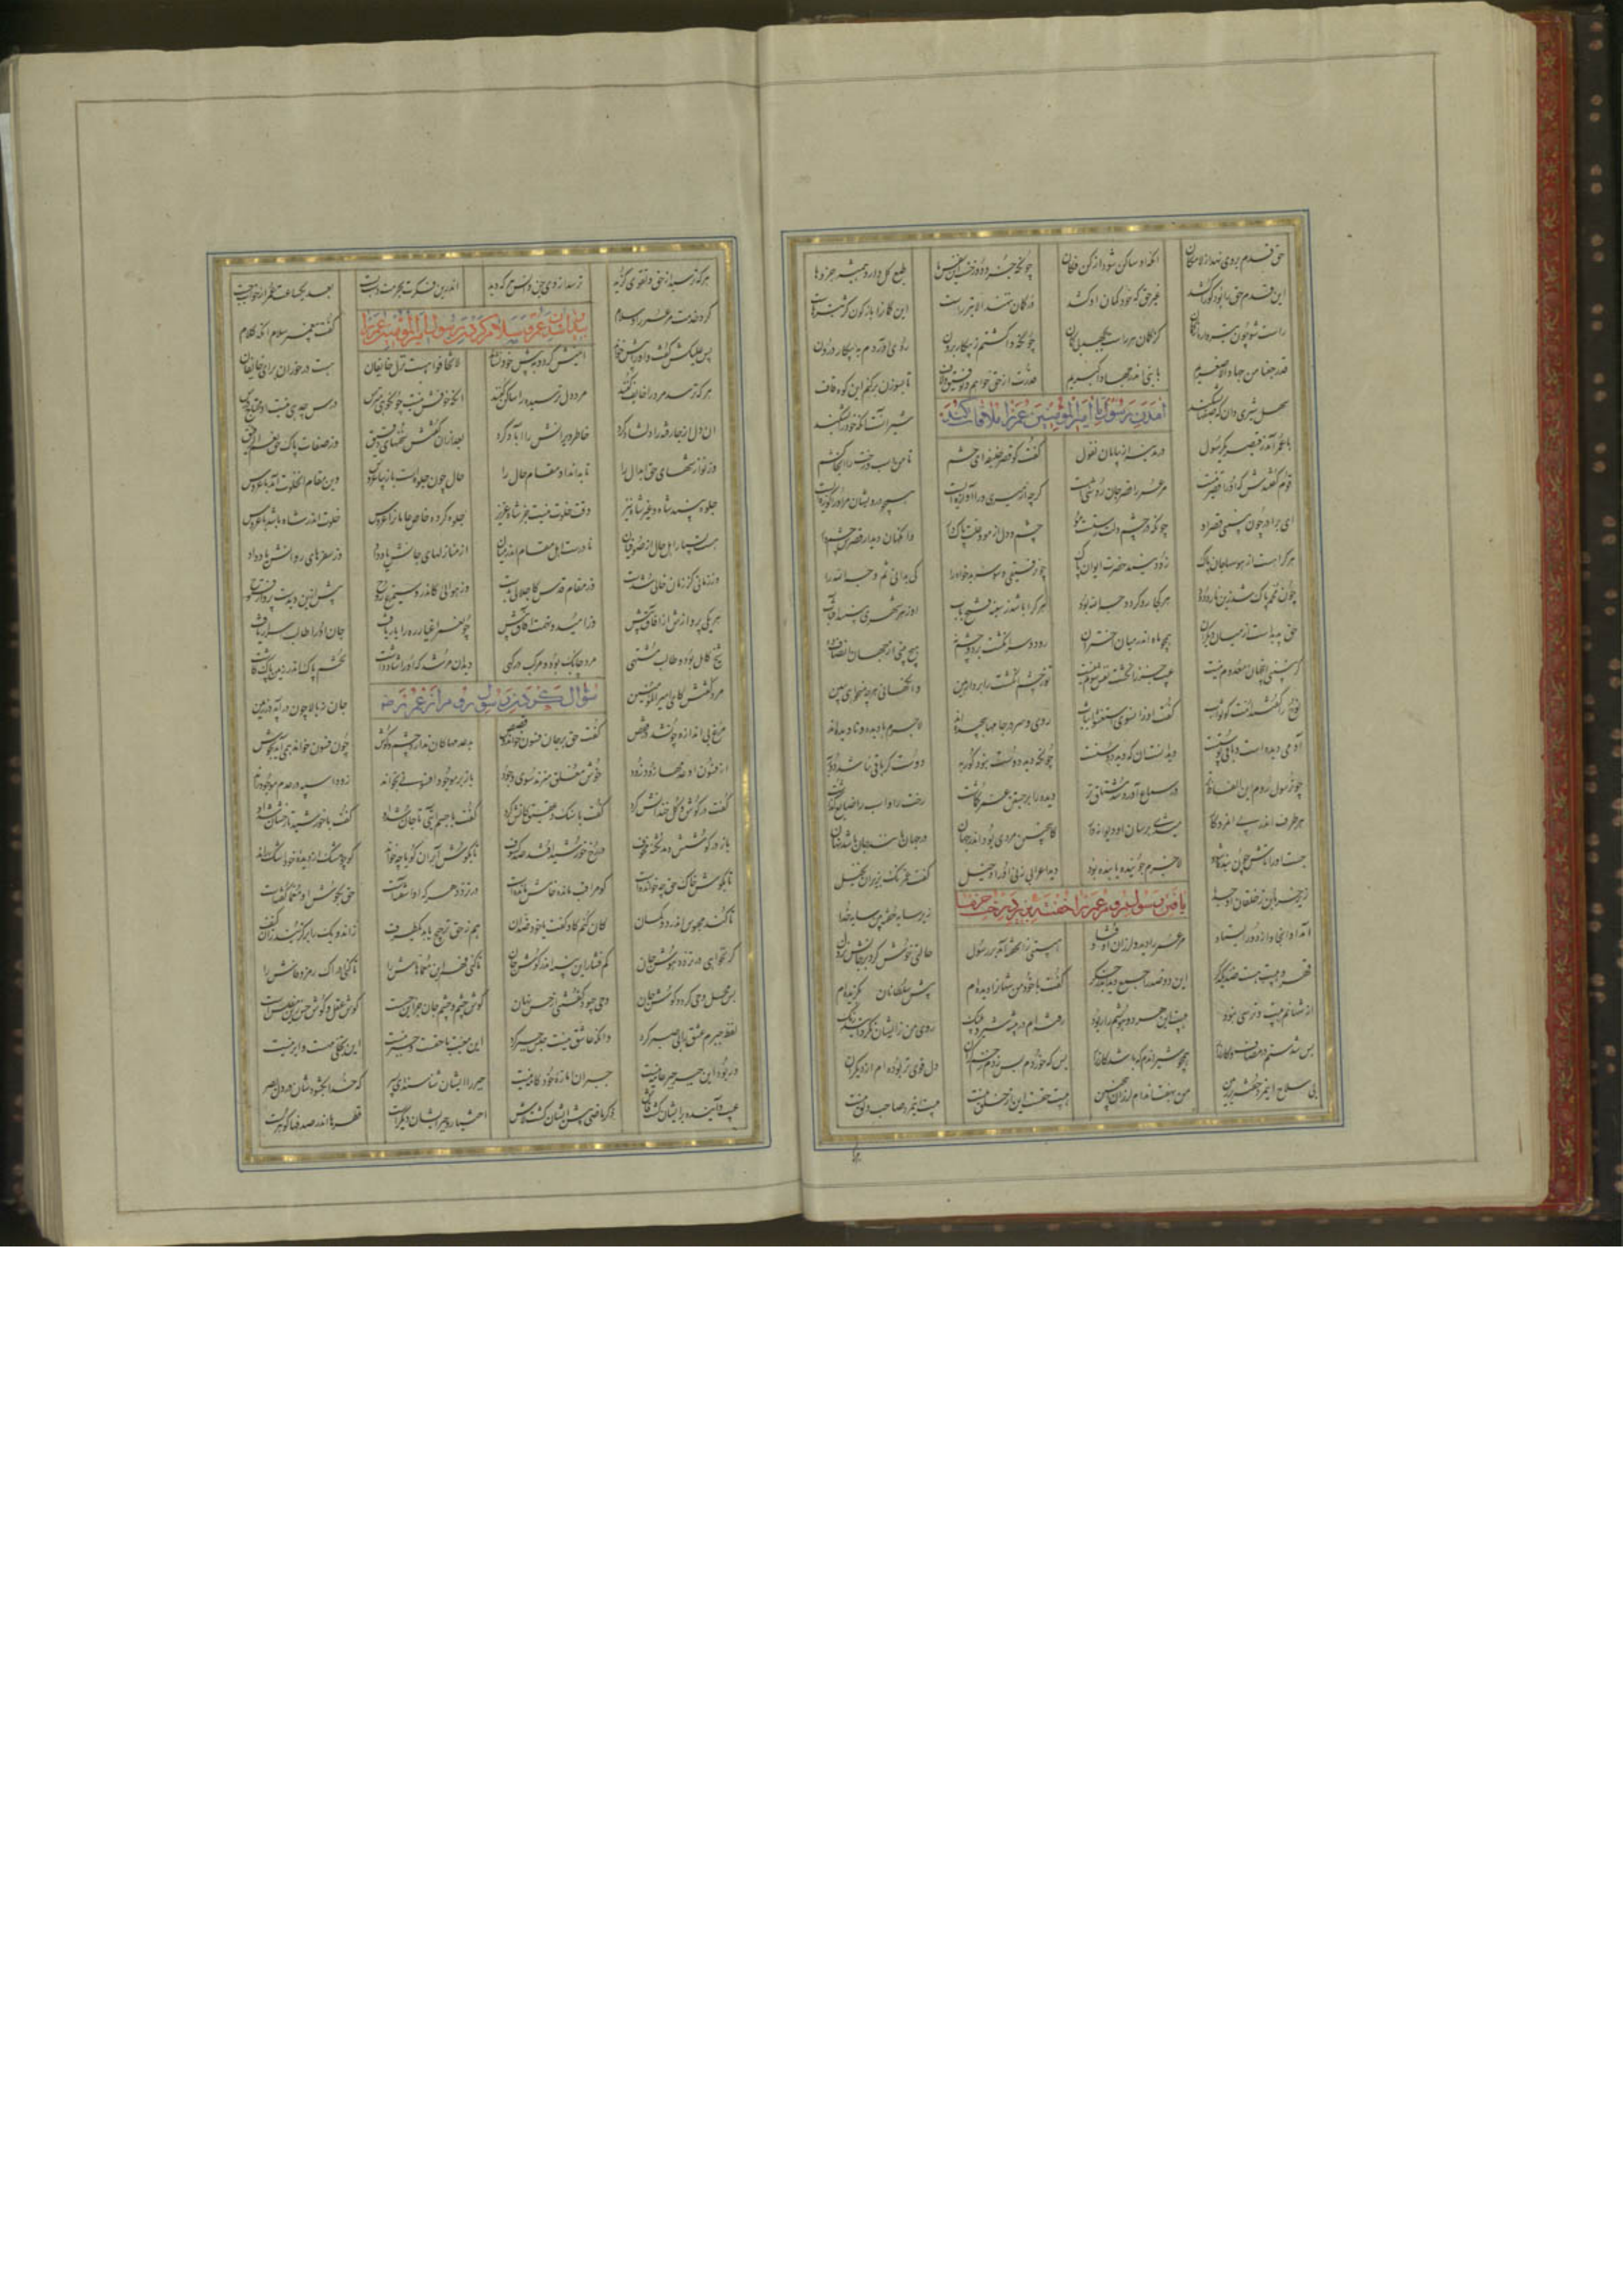 حق قدم بر وی نهد از لامکان آنگه او ساکن شود از کن فکان چونکه جزو دوزخست این نفس ما طبع کل دارد همیشه جزوها
این قدم حق را بود کو را کشد غیر حق که خود کمان او کشد در کمان ننهند الا تیر راست این کمان را بازگون کژ تیرهاست
راست شو چون تیر و واره از کمان کز کمان هر راست بجهد بی گمان چونکه واگشتم ز پیکار برون روی آوردم به پیکار درون
قد رجعنا من جهاد الاصغریم با نبی اندر جهاد اکبریم قدرت از حق خواهم و توفیق و لاف تا بسوزن برکنم این کوه قاف
سهل شیری دان که صفها بشکند شیر آنست آنکه خود را بشکند
آمدن رسول با امیر المؤمنین عمر را ملاقات کند
با عمر آمد ز قیصر یک رسول در مدینه از بیابان نغول گفت کو قصر خلیفه ای حشم تا من اسب و رخت را آنجا کشم
قوم گفتندش که او را قصر نیست مر عمر را قصر جان روشنیست گرچه از میری ورا آوازه ایست همچو درویشان مر او را کازه ایست
ای برادر چون ببینی قصر او چونکه در چشم دلت رستست مو چشم دل از مو و علت پاک آر وانگهان دیدار قصرش چشم دار
هر کرا هست از هوسها جان پاک زود بیند حضرت و ایوان پاک چون رفیقی وسوسه بدخواه را کی بدانی ثم وجه الله را
چون محمد پاک شد زین نار و دود هر کجا رو کرد وجه الله بود هر کرا باشد ز سینه فتح باب او ز هر شهری ببیند آفتاب
حق پدیدست از میان دیگران همچو ماه اندر میان اختران دو سر انگشت بر دو چشم نه هیچ بینی از جهان انصاف ده
گر نبینی این جهان معدوم نیست عیب جز ز انگشت نفس شوم نیست تو ز چشم انگشت را بردار هین وانگهانی هر چه میخواهی ببین
نوح را گفتند امت کو ثواب گفت او زآن سوی استغشوا ثیاب روی و سر در جامها پیچیده اند لاجرم با دیده و نادیده اند
آدمی دیده است و باقی پوستست دید آنست آن که دید دوستست چونکه دید دوست نبود کور به دوست کو باقی نباشد دور به
چون رسول روم این الفاظ تر در سماع آورد شد مشتاق تر دیده را بر جستن عمر گماشت رخت را و اسب را ضایع گذاشت
هر طرف اندر پی آن مرد کار می شدی پرسان او دیوانه وار کاین چنین مردی بود اندر جهان وز جهان مانند جان باشد نهان
جست او را تاش چون بنده بود لاجرم جوینده یابنده بود دید اعرابی زنی او را دخیل گفت عمر نک بزیر آن نخیل
زیر خرما بن ز خلقان او جدا زیر سایه خفته بین سایه خدا
یافتن رسول روم عمر را خفته در زیر درخت خرما
آمد او آنجا و از دور ایستاد مر عمر را دید و در لرز اوفتاد هیبتی زآن خفته آمد بر رسول حالتی خوش کرد بر جانش نزول
مهر و هیبت هست ضد یکدگر این دو ضد را جمع دید اندر جگر گفت با خود من شهان را دیده ام پیش سلطانان بگزیده ام
از شهانم هیبت و ترسی نبود هیبت این مرد هوشم را ربود رفته ام در بیشه شیر و پلنگ روی من ز ایشان نگردانید رنگ
بس شدستم در مصاف و کارزار همچو شیر آندم که باشد کار زار بس که خوردم بس زدم زخم گران دل قوی تر بوده ام از دیگران
بی سلاح این مرد خفته بر زمین من بهفت اندام لرزان چیست این هیبت حقست این از خلق نیست هیبت این مرد صاحب دلق نیست
هر که ترسید از حق و تقوی گزید ترسد از وی جن و انس و هر که دید اندرین فکرت بحرمت دست بست بعد یکساعت عمر از خواب جست
کرد خدمت مر عمر را و سلام گفت پیغمبر سلام آنگه کلام
سلام کردن رسول امیر المؤمنین عمر را
پس علیکش گفت و او را پیش خواند ایمنش کرد و بپیش خود نشاند لا تخافوا هست نزل خایفان هست در خور از برای خایف آن
هر که ترسد مر ورا ایمن کنند مر دل ترسنده را ساکن کنند آنکه خوفش نیست چون گویی مترس درس چه دهی نیست او محتاج درس
آن دل از جا رفته را دلشاد کرد خاطر ویرانش را آباد کرد بعد از آن گفتش سخنهای دقیق وز صفات پاک حق نعم الرفیق
وز نوازشهای حق ابدال را تا بداند او مقام و حال را حال چون جلوه است زآن زیبا عروس وین مقام آن خلوت آمد با عروس
جلوه بیند شاه و غیر شاه نیز وقت خلوت نیست جز شاه عزیز جلوه کرده خاص و عامان را عروس خلوت اندر شاه باشد با عروس
هست بسیار اهل حال از صوفیان نادرست اهل مقام اندر میان از منازلهای جانش یاد داد وز سفرهای روانش یاد داد
وز زمانی کز زمان خالی بدست وز مقام قدس که اجلالی بدست وز هوایی کاندرو سیمرغ روح پیش ازین دیدست پرواز و فتوح
هر یکی پروازش از آفاق بیش وز امید و نهمت مشتاق بیش چون عمر اغیار رو را یار یافت جان او را طالب اسرار یافت
شیخ کامل بود و طالب مشتهی مرد چابک بود و مرکب درگهی دید آن مرشد که او ارشاد داشت تخم پاک اندر زمین پاک کاشت
سؤال کردن رسول روم از عمر رضه
مرد گفتش کای امیر المؤمنین جان ز بالا چون در آمد در زمین
مرغ بی اندازه چون شد در قفص گفت حق بر جان فسون خواند و قصص بر عدمها کان ندارد چشم و گوش چون فسون خواند همی آید بجوش
از فسون او عدمها زود زود خوش معلق میزند سوی وجود باز بر موجود افسونی چو خواند زو دو اسبه در عدم موجود راند
گفت در گوش گل و خندانش کرد گفت با سنگ و عقیق کانش کرد گفت با جسم آیتی تا جان شد او گفت با خورشید تا رخشان شد او
باز در گوشش دمد نکته مخوف در رخ خورشید افتد صد کسوف تا بگوش ابر آن گویا چه خواند کو چو مشک از دیده خود اشک راند
تا بگوش خاک حق چه خوانده است کو مراقب مانده خامش مانده است در تردد هر که او آشفته است حق بگوش او معما گفته است
تا کند محبوسش اندر دو گمان کآن کنم کو گفت یا خود ضد آن هم ز حق ترجیح یابد یک طرف زآن دو یک را بر گزیند زان کنف
گر نخواهی در تردد هوش جان کم فشار این پنبه اندر گوش جان تا کنی فهم این معماهاش را تا کنی ادراک رمز و فاش را
پس محل وحی گردد گوش جان وحی چبود گفتنی از حس نهان گوش جان و چشم جان جز این حس است گوش عقل و گوش حس زین مفلس است
لفظ جبرم عشق را بی صبر کرد وآنکه عاشق نیست حبس جبر کرد این معیت با حقست و جبر نیست این تجلی مه است و ابر نیست
ور بود این جبر جبر عامه نیست جبر آن اماره خودکامه نیست جبر را ایشان شناسند ای پسر که خدا بگشودشان در دل بصر
غیب و آینده بر ایشان گشت فاش ذکر ماضی پیش ایشان گشت لاش اختیار و جبر ایشان دیگرست قطره ها اندر صدفها گوهرست